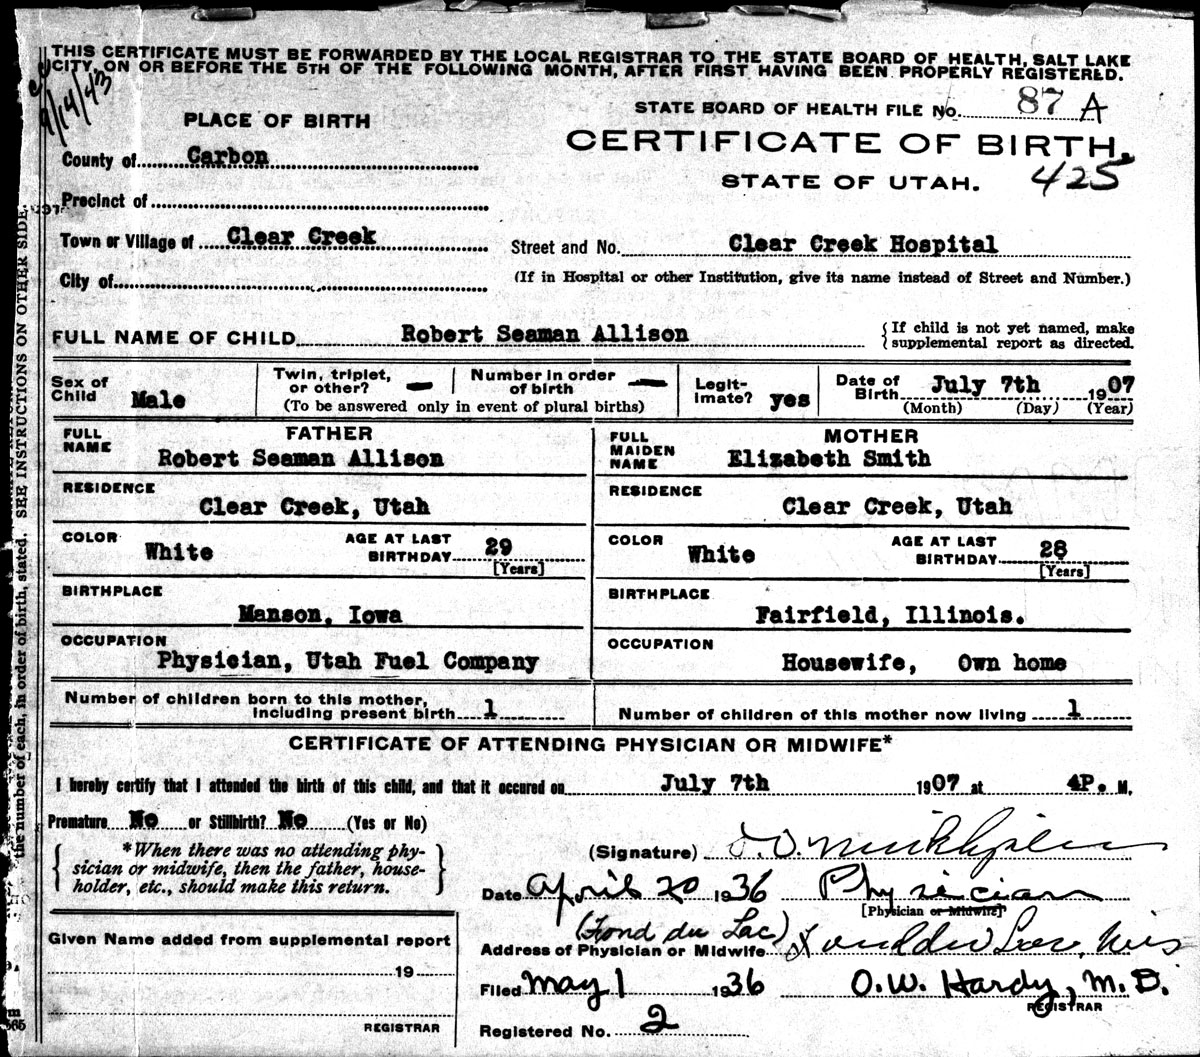 THIS CERTIFICATE MUST BE FORWARDED BY THE LOCAL REGISTRAR TO THE STATE BOARD OF HEALTH, SALT LAKE
CITY, ON OR BEFORE THE 5TH OF THE FOLLOWING MONTH, AFTER FIRST HAVING BEEN PROPERLY REGISTERED.
9/14/43
STATE BOARD OF HEALTH FILE No. 87 A
PLACE OF BIRTH
CERTIFICATE OF BIRTH.
County of Carbon
STATE OF UTAH. 425
Precinct of
Town or Village of Clear Creek
Street and No. Clear Creek Hospital
City of
(If in Hospital or other Institution, give its name instead of Street and Number.)
FULL NAME OF CHILD Robert Seaman Allison
{If child is not yet named, make
supplemental report as directed.
Sex of Child Male
Twin, triplet, or other? —
Number in order of birth —
(To be answered only in event of plural births)
Legit- imate? yes
Date of Birth July 7th 1907
(Month) (Day) (Year)
FATHER
FULL NAME Robert Seaman Allison
MOTHER
FULL MAIDEN NAME Elizabeth Smith
RESIDENCE
Clear Creek, Utah
RESIDENCE
Clear Creek, Utah
COLOR White AGE AT LAST BIRTHDAY 29 [Years]
COLOR White AGE AT LAST BIRTHDAY 28 [Years]
BIRTHPLACE
Manson, Iowa
BIRTHPLACE
Fairfield, Illinois.
OCCUPATION
Physician, Utah Fuel Company
OCCUPATION
Housewife, Own home
Number of children born to this mother,
including present birth 1
Number of children of this mother now living 1
CERTIFICATE OF ATTENDING PHYSICIAN OR MIDWIFE*
I hereby certify that I attended the birth of this child, and that it occured on July 7th 1907 at 4P. M.
Premature No or Stillbirth? No (Yes or No)
{ *When there was no attending phy-
sician or midwife, then the father, house-
holder, etc., should make this return. }
(Signature)
Date April 20 1936 Physician
[Physician or Midwife]
(Fond du Lac)
Address of Physician or Midwife Fond du Lac, Wis
Given Name added from supplemental report
19
REGISTRAR
Filed May 1 1936 O.W. Hardy, M.D.
REGISTRAR
Registered No. 2
the number of each, in order of birth, stated. SEE INSTRUCTIONS ON OTHER SIDE.